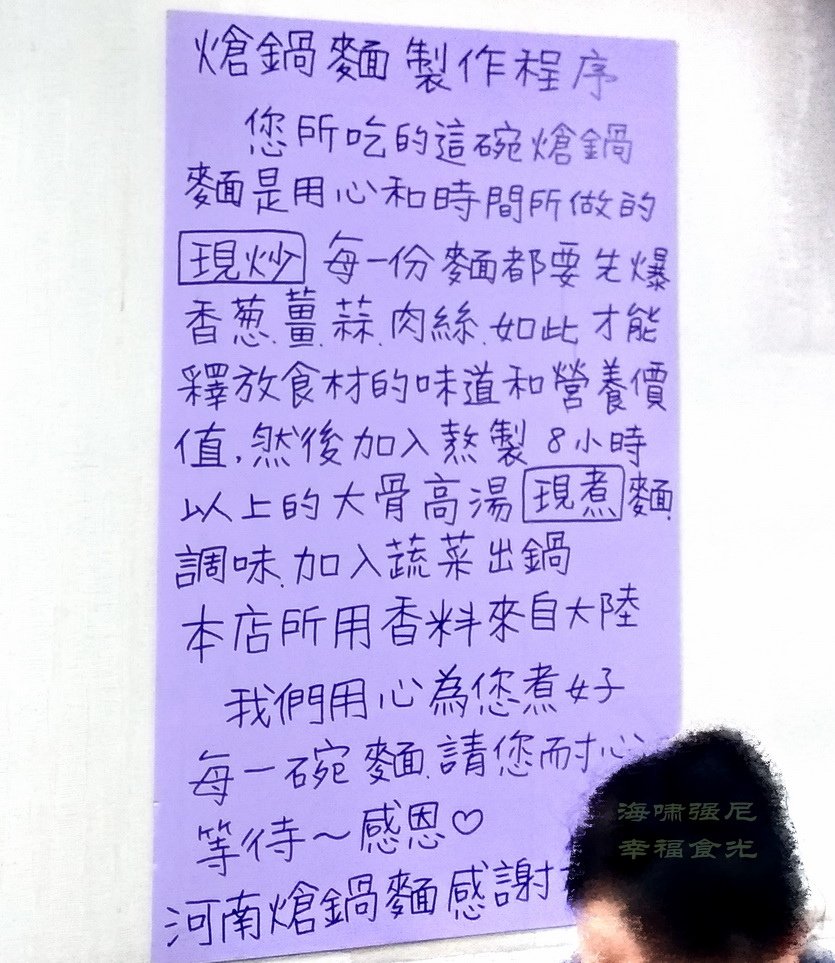 熗鍋麵製作程序
您所吃的這碗熗鍋
麵是用心和時間所做的
現炒 每一份麵都要先爆
香葱.薑.蒜.肉絲.如此才能
釋放食材的味道和營養價
值,然後加入熬製8小時
以上的大骨高湯現煮麵.
調味.加入蔬菜出鍋
本店所用香料來自大陸
我們用心為您煮好
每一碗麵.請您耐心
等待～感恩♡
河南熗鍋麵感謝
海啸强尼
幸福食光